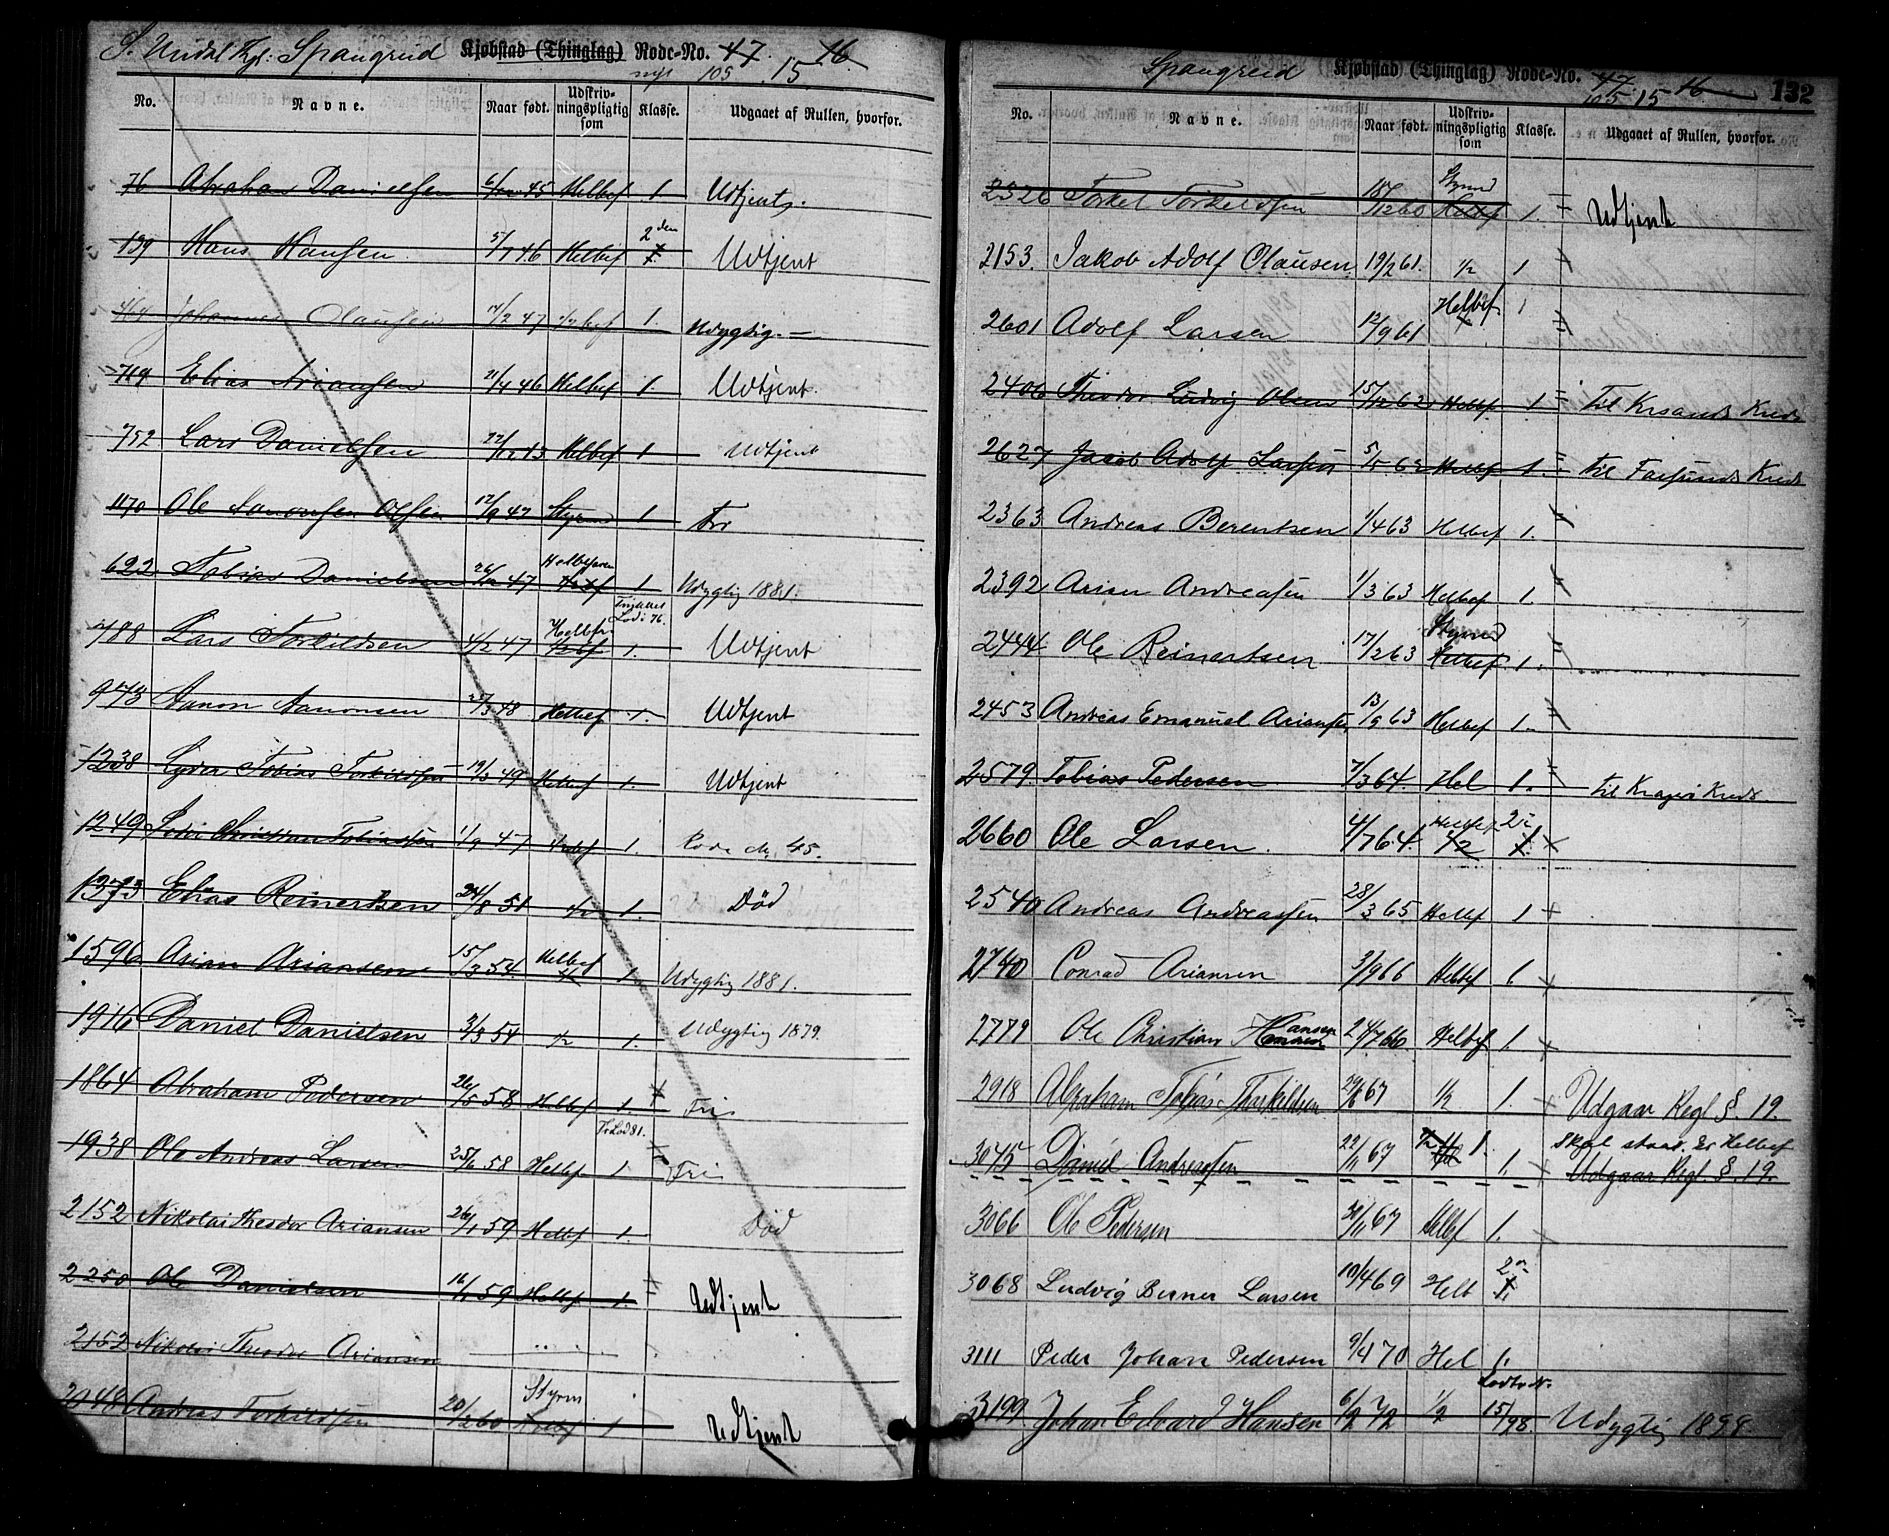 S. Undal Kgl: Spangreid Kjøbstad (Thinglag) Rode-No. 47 16
nyt 105 15
No. Navne. Naar født. Udskriv-ningspligtig som Klasse. Udgaaet af Rullen, hvorfor.
76 Abraham Danielsen 45 Helbef 1 Udtjent.
139 Hans Hansen 5/7 46 Helbef 2den 1 Udtjent
464 Johannes Olausen 47 ½ bef 1. Udygtig.
719 Elias Ariansen 21/4 46 Helbef 1. Udtjent.
752 Lars Danielsen Helbef 1 Udtjent
1170 Ole Aanonsen Olsen Styrm 1
622 Tobias Danielsen 47 Helbefaren 1 Udygtig 1881.
788 Lars Torkildsen 4/2 47 Helbefr 1. Frukket Lod: 76. Udtjent
973 Aanon Aanonsen 48 Helbef 1. Udtjent
1238 Lydер Tobias Torkildsen 19/3 49 Helbef 1. Udtjent
1249 Christian Tobiassen 1/9 47 1. Rode No. 45.
1373 Elias Reinertsen 24/8 51 ½ 1. Død
1596 Arian Ariansen 15/3 54 Helbef 1. Udygtig 1881.
1916 Daniel Danielsen 3/3 54 ½ 1. Udygtig 1879.
1864 Abraham Pedersen 26/5 58 Helbef 1. Fri
1938 Ole Andreas Larsen 25/6 58 Helbef 1 Fr Lod 81. Fri
2152 Nikolai Theodor Ariansen 26/1 59 Helbf 1. Død
2250 Ole Danielsen 16/1 59 Helbf 1. Udtjent
2152 Nikolai Theodor Ariansen
2048 Andreas Torkildsen 20/2 60 Styrm 1 Udtjent
Spangreid Kjøbstad (Thinglag) Rode-No. 47 16 132
105 15
No. Navne. Naar født. Udskriv-ningspligtig som Klasse. Udgaaet af Rullen, hvorfor.
2326 Torkel Torkeldsen 18/12 60 Styrmd Helbf 1. Udtjent
2153. Jakob Adolf Olausen 19/2 61. ½ 1
2601 Adolf Larsen 12/9 61 Helbef 1
2406 Theodor Ludvig Olsen 15/12 62 Helbf 1 Til Krsands Kreds
2627 Jacob Adolf Larsen 5/5 62 Helbf 1. til Farsunds Kreds
2363 Andreas Berentsen 1/4 63 Helbef 1.
2392 Arian Andreasen 1/3 63 Helbef 1.
2444 Ole Reinertsen 17/2 63 Styrmd Helbef 1.
2453 Andreas Emanuel Ariansen 13/9 63 Helbef 1.
2579 Tobias Pedersen 7/3 64. Hel 1. til Kragerø Kreds.
2660 Ole Larsen. 4/7 64 Helbef ½ 2 1.
2540 Andreas Andreassen 28/3 65 Helbf 1
2740 Conrad Ariansen 3/9 66 Helbf 1
2779 Ole Christian Hansen 24/7 66. Helbef 1
2918 Abraham Tobias Thorkildsen 29/6 67 ½ 1. Udgaar Regl §. 19.
Skal staa, Er Helbef
3045 Daniel Andreassen 22/11 67 1. Udgaar Regl §. 19.
3066 Ole Pedersen 30/11 67 Helbf 1.
3068 Ludvig Berner Larsen 10/4 69 Helb 2 1.
3111 Peder Johan Pedersen 9/4 70 Hel 1.
3199 Johan Edvard Hansen 6/2 72 ½ Lodtr. 15/98. Udygtig 1898.